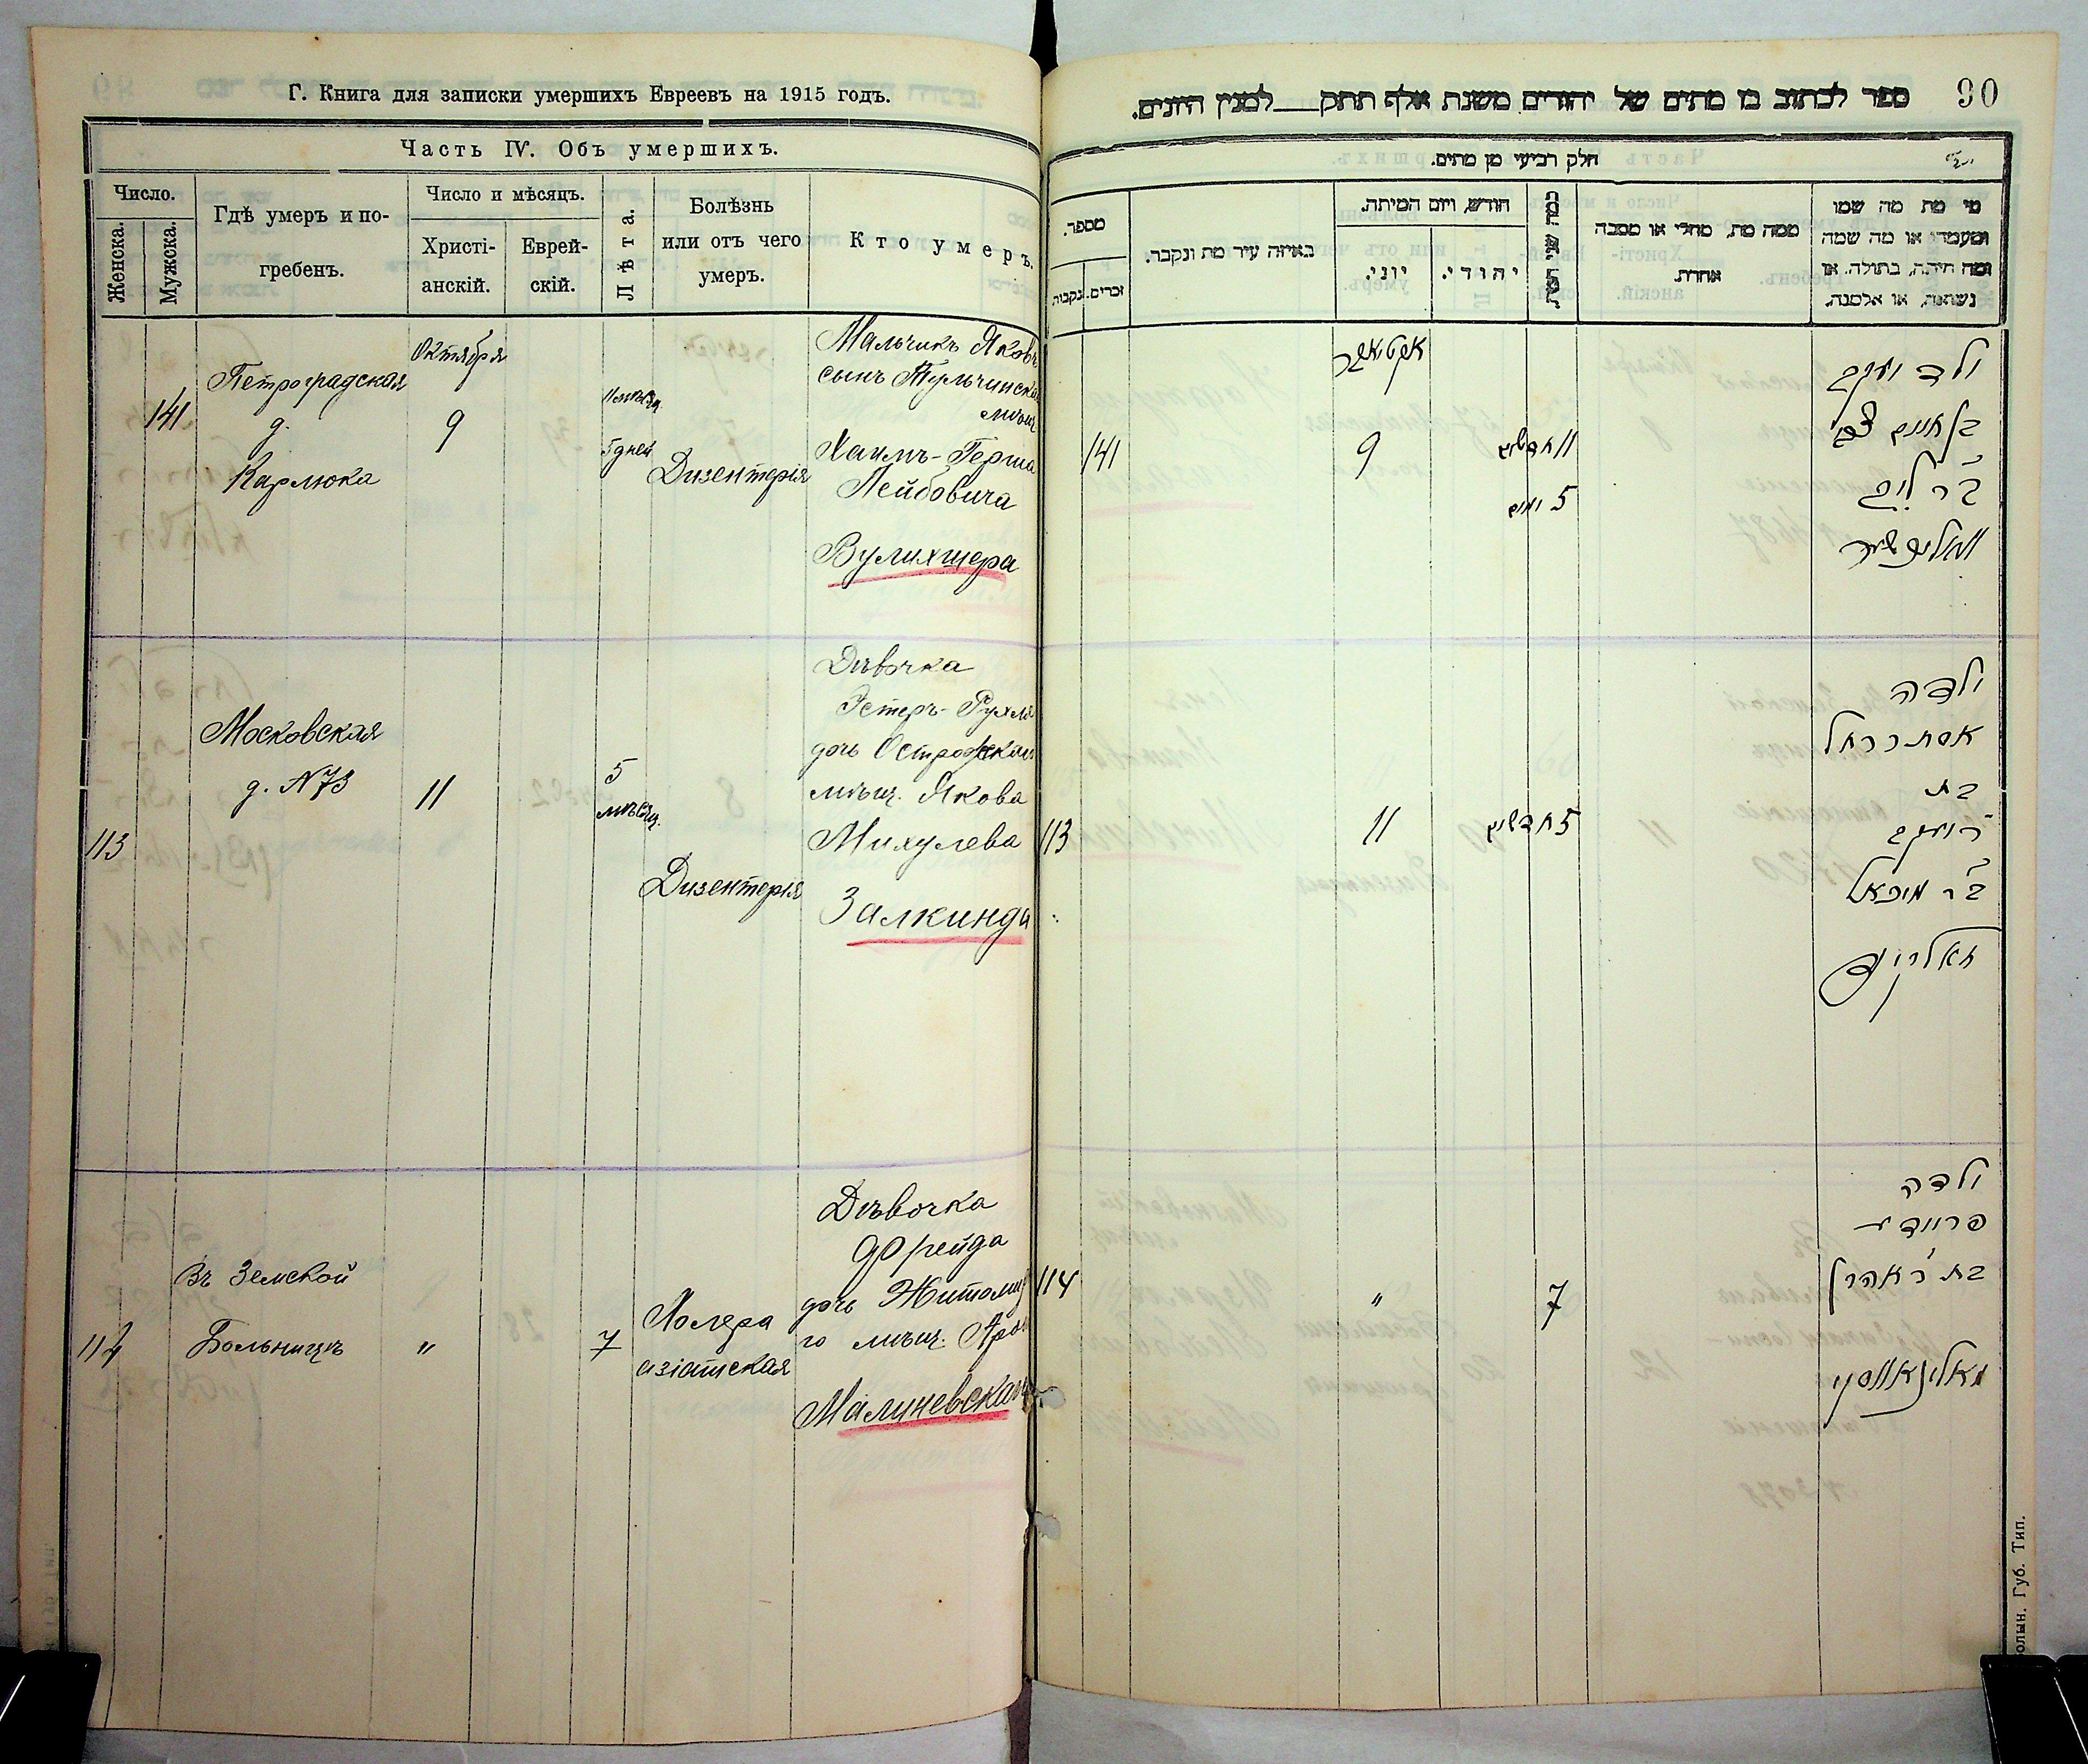 Г. Книга для записки умершихъ Евреевъ на 1915 годъ.
Часть IV. Объ умершихъ.
Число.
Женска.
Мужска.
Гдѣ умеръ и по-
гребенъ.
Число и мѣсяцъ.
Христі-
анскій.
Еврей-
скій.
Лѣта.
Болѣзнь
или отъ чего
умеръ.
Кто умеръ.
141
Петроградская
д.
Карлюка
Октября
9
11 мѣсяц.
5 дней
Дизентерія
Мальчикъ Яковъ
сынъ Тульчинска
мѣщ
Хаимъ-Герша
Лейбовича
Вулихшера
113
Московская
д. N 73
11
5
мѣсяц.
Дизентерія
Дѣвочка
Эстеръ-Рухля
дочь Острожскаго
мѣщ. Якова
Михулева
Залкинда
114
Въ Земской
Больницѣ
"
7
Холера
азіатская
Дѣвочка
Фрейда
дочь Житомир
го мѣщ. Арон
Малиневскаго
90
ספר לכתוב בו מתים של יהודים משנת אלף תתק___למנין היונים.
חלק רביעי מן מתים.
מספר.
נקבות
זכרים.
באיזה עיר מת ונקבר.
חודש, ויום המיתה.
יוני.
יהודי.
כמה שני חייו
ממה מת, מחלי או מסבה
אחרת.
מי מת מה שמו
ומעמדו או מה שמה
ומה היתה, בתולה, או
נשואה, או אלמנה.
141
אקטיאבר
9
11 חדשים
5 ימים
ילד יעקב
בן חיים צבי
ב"ר ליב
וואליכשער
113
11
5 חדשים
ילדה
אסתר רחל
בת
ר' יעקב
ב"ר מיכאל
זאלקינד
114
"
7
ילדה
פריידא
בת ר' אהרן
מאלינאווסקי
олын. Губ. Тип.